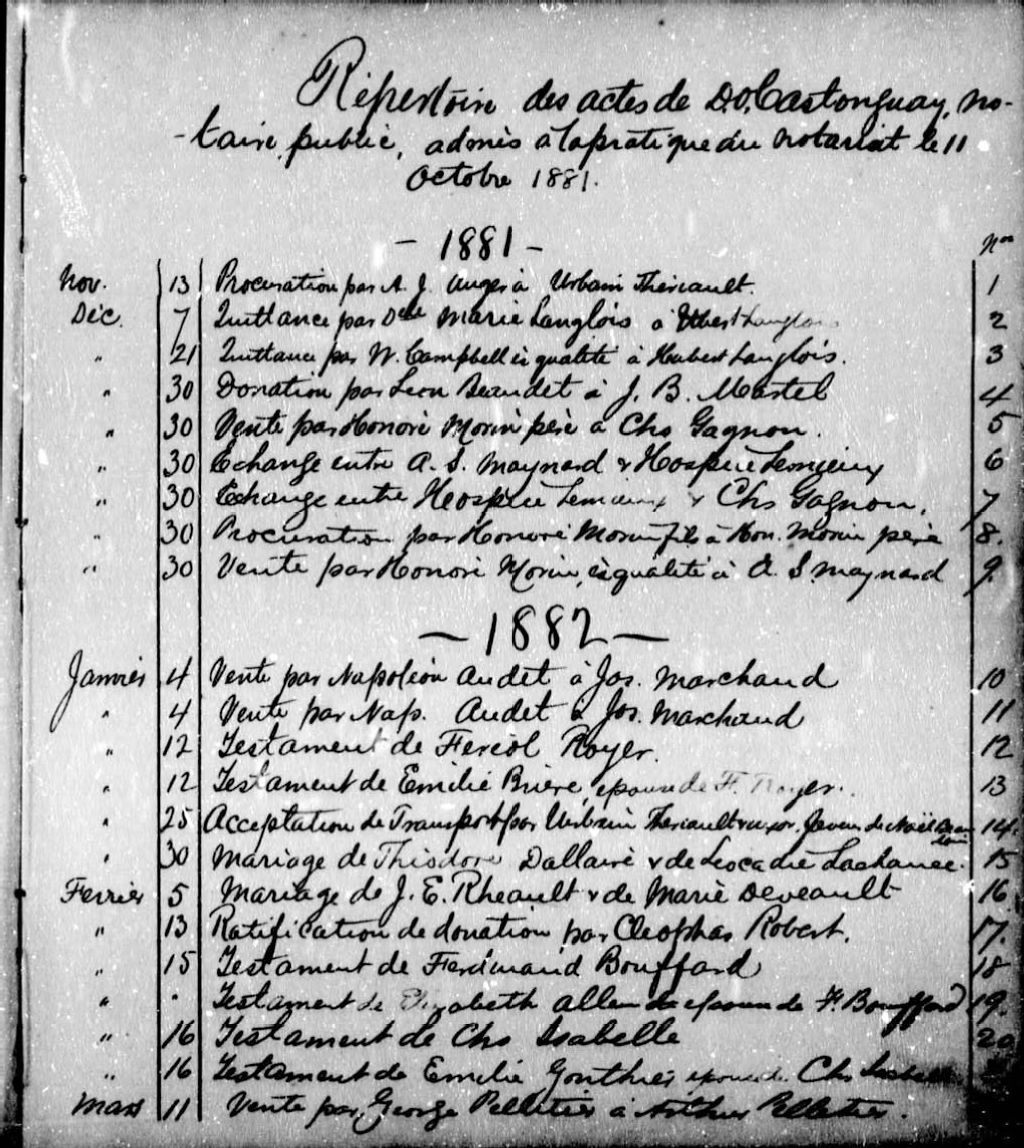 Répertoire des actes de D.O. Castonguay, no-
-taire public, admis à la pratique du notariat le 11
Octobre 1881.
- 1881 -
Nos
Nov. 13 Procuration par A. J. Auger à Urbain Theriault. 1
Déc. 7 Quittance par Delle Marie Langlois à Langlois 2
" 21 Quittance par W. Campbell ès qualité à Hubert Langlois. 3
" 30 Donation par Léon Beaudet à J. B. Martel 4
" 30 Vente par Honoré Morin père à Chs Gagnon. 5
" 30 Echange entre A. S. Maynard & Hospice Lemieux 6
" 30 Echange entre Hospice Lemieux & Chs Gagnon. 7
" 30 Procuration par Honoré Morin fils à Hon. Morin père 8.
" 30 Vente par Honoré Morin, ès qualité à A. S. Maynard 9.
- 1882 -
Janvier 4 Vente par Napoléon Audet à Jos. Marchand 10
" 4 Vente par Nap. Audet à Jos. Marchand 11
" 12 Testament de Feréol Royer. 12
" 12 Testament de Emilie Brière, épouse de F. Royer. 13
" 25 Acceptation de Transport par Urbain Theriault & uxor. faveur de Noël 14.
" 30 Mariage de Théodore Dallaire & de Leocadie Lachance. 15
Fevrier 5 Mariage de J. E. Rheault & de Marie Deveault 16
" 13 Ratification de donation par Cleophas Robert. 17.
" 15 Testament de Ferdinand Bouffard 18
" " Testament de Elizabeth Allen épouse de F. Bouffard 19.
" 16 Testament de Chs Isabelle 20
" 16 Testament de Emilie Gonthier épouse de Chs Isabelle
Mars 11 Vente par George Pelletier à Arthur Pelletier.